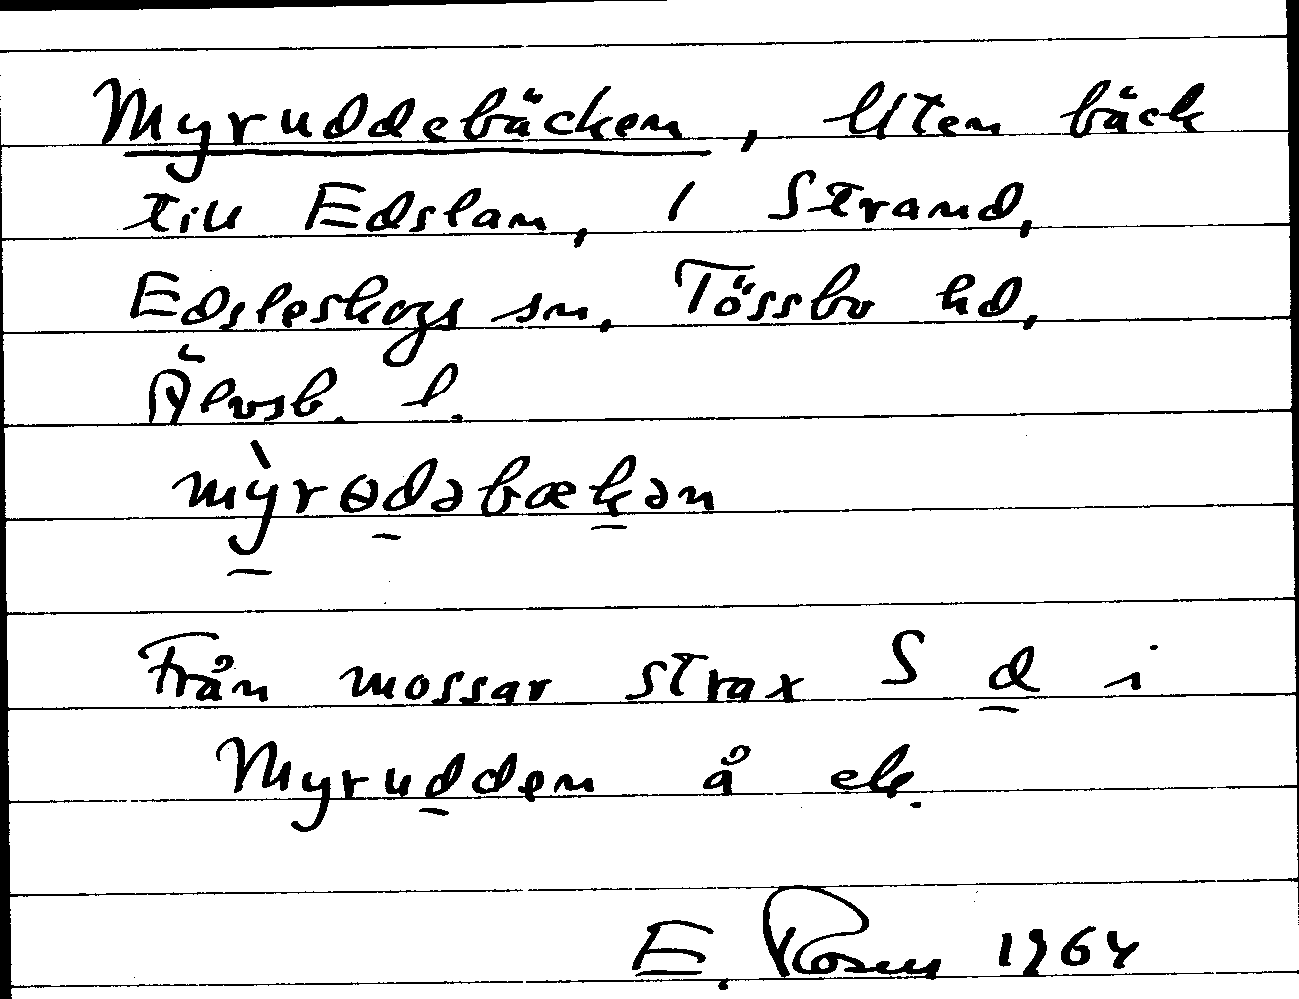 Myruddebäcken, liten bäck
till Edslan, i Strand,
Edsleskogs sn, Tössbo hd,
Älvsb. l.
mỳrɵdəbækən
Från mossar strax S d i
Myrudden å ek.
E. Rosen 1964